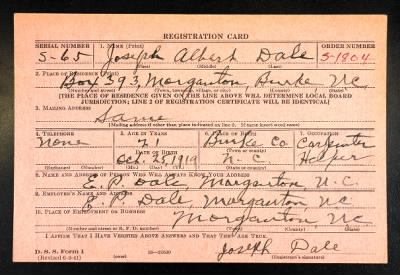 REGISTRATION CARD
SERIAL NUMBER 1. NAME (Print) ORDER NUMBER
S-65 Joseph Albert Dale S-1804
(First) (Middle) (Last)
2. PLACE OF RESIDENCE (Print)
Box 393, Morganton, Burke N.C.
(Town, township, village, or city) (County) (State)
[THE PLACE OF RESIDENCE GIVEN ON THE LINE ABOVE WILL DETERMINE LOCAL BOARD
JURISDICTION; LINE 2 OF REGISTRATION CERTIFICATE WILL BE IDENTICAL]
3. MAILING ADDRESS
Same
[Mailing address if other than place indicated on line 2. If same insert word same]
4. TELEPHONE 5. AGE IN YEARS 6. PLACE OF BIRTH 7. OCCUPATION
None 21 Burke Co. Carpenter
DATE OF BIRTH (Town or county)
Oct. 25, 1919 N-C. Helper
(Exchange) (Number) (Mo.) (Day) (Yr.) (State or country)
8. NAME AND ADDRESS OF PERSON WHO WILL ALWAYS KNOW YOUR ADDRESS
E. P. Dale, Morganton, N.C.
9. EMPLOYER'S NAME AND ADDRESS
E. P. Dale, Morganton N.C.
10. PLACE OF EMPLOYMENT OR BUSINESS
Morganton, N.C.
(Number and street or R. F. D. number) (Town) (County) (State)
I AFFIRM THAT I HAVE VERIFIED ABOVE ANSWERS AND THAT THEY ARE TRUE.
Joseph Dale
D. S. S. Form 1
(Revised 6-9-41) (Registrant's signature)